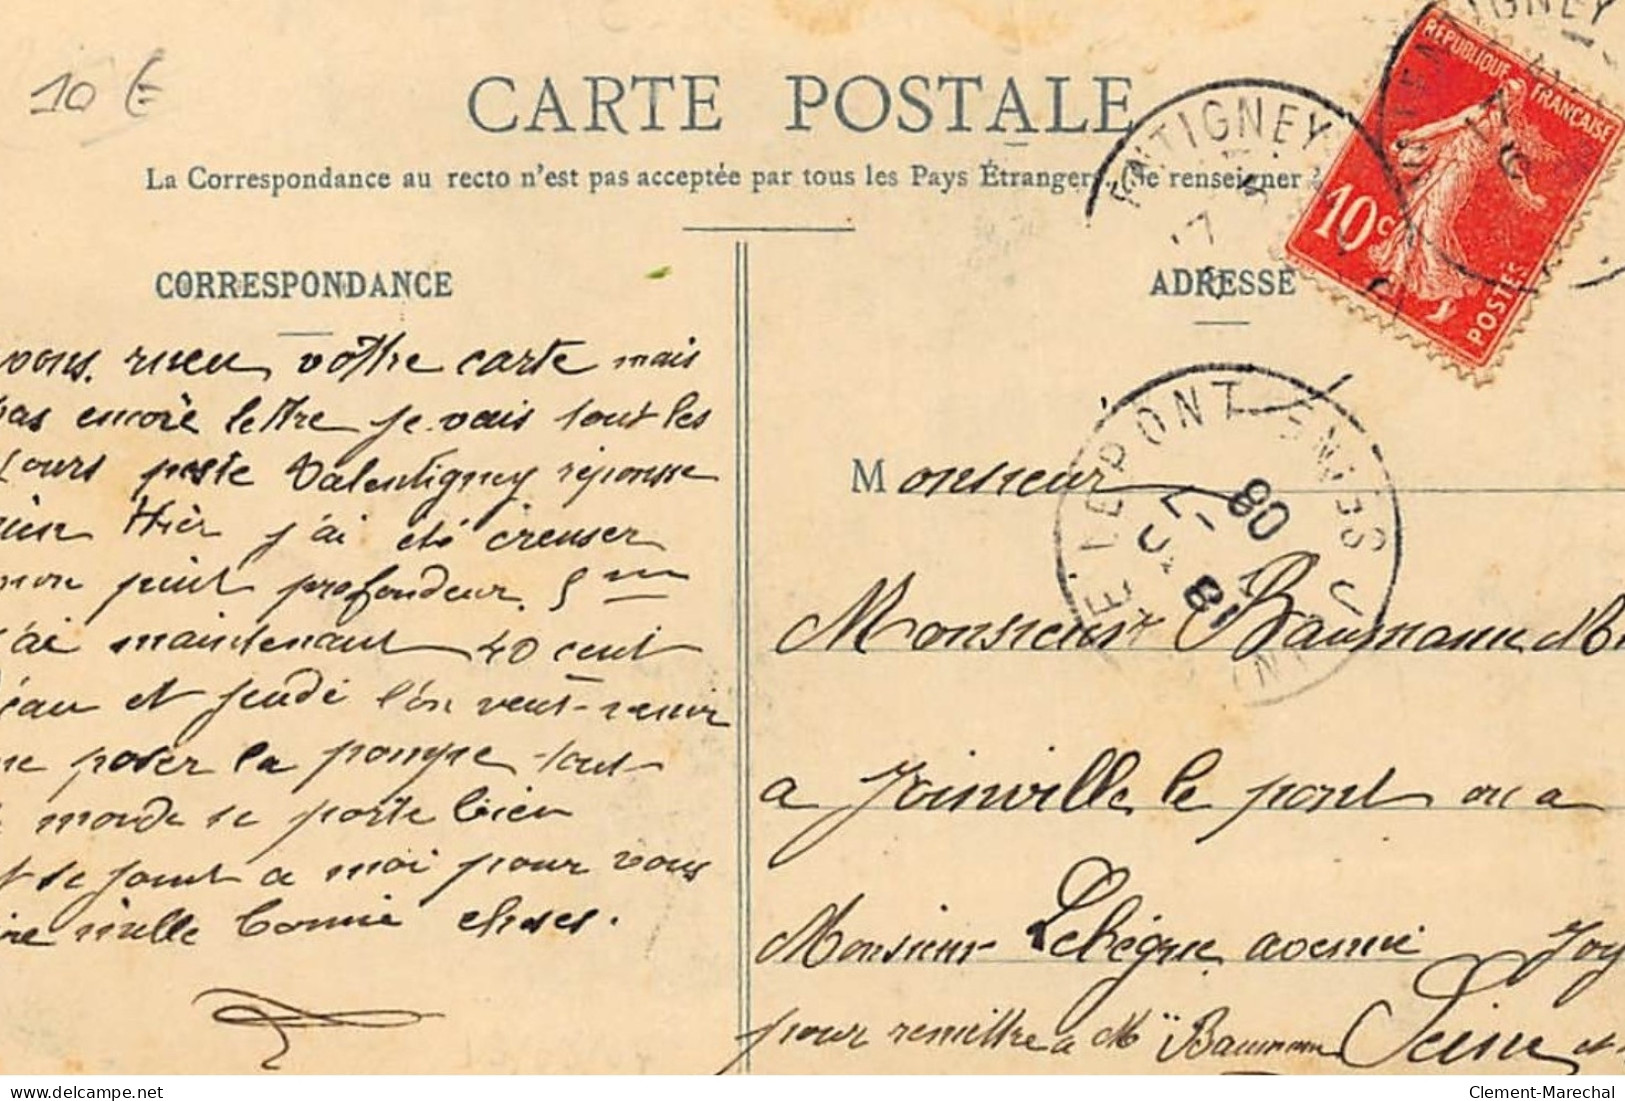 10 €
CARTE POSTALE
La Correspondance au recto n'est pas acceptée par tous les Pays Étrangers. (Se renseigner à
CORRESPONDANCE
ADRESSE
RÉPUBLIQUE FRANÇAISE
10c
POSTES
NTIGNEY
JOINVILLE LE PONT
SEINE
08
vous. rueu vottre carte mais
pas encore lettre je vais tout les
jours poste Valentigney réponsse
rien Hier j'ai été creuser
mon puit profondeur. 5 m
j'ai maintenant 40 cent
d'eau et jeudi l'on vent venir
me poser la pompe tout
le monde se porte bien
et se joint a moi pour vous
dire mille bonne choses.
Monsieur
Monsieur Baumann
a Joinville le pont ou a
Monsieur Lebègue avenue Joy
pour remettre a Mr Baumann Seine et
Clement-Marechal
delcampe.net